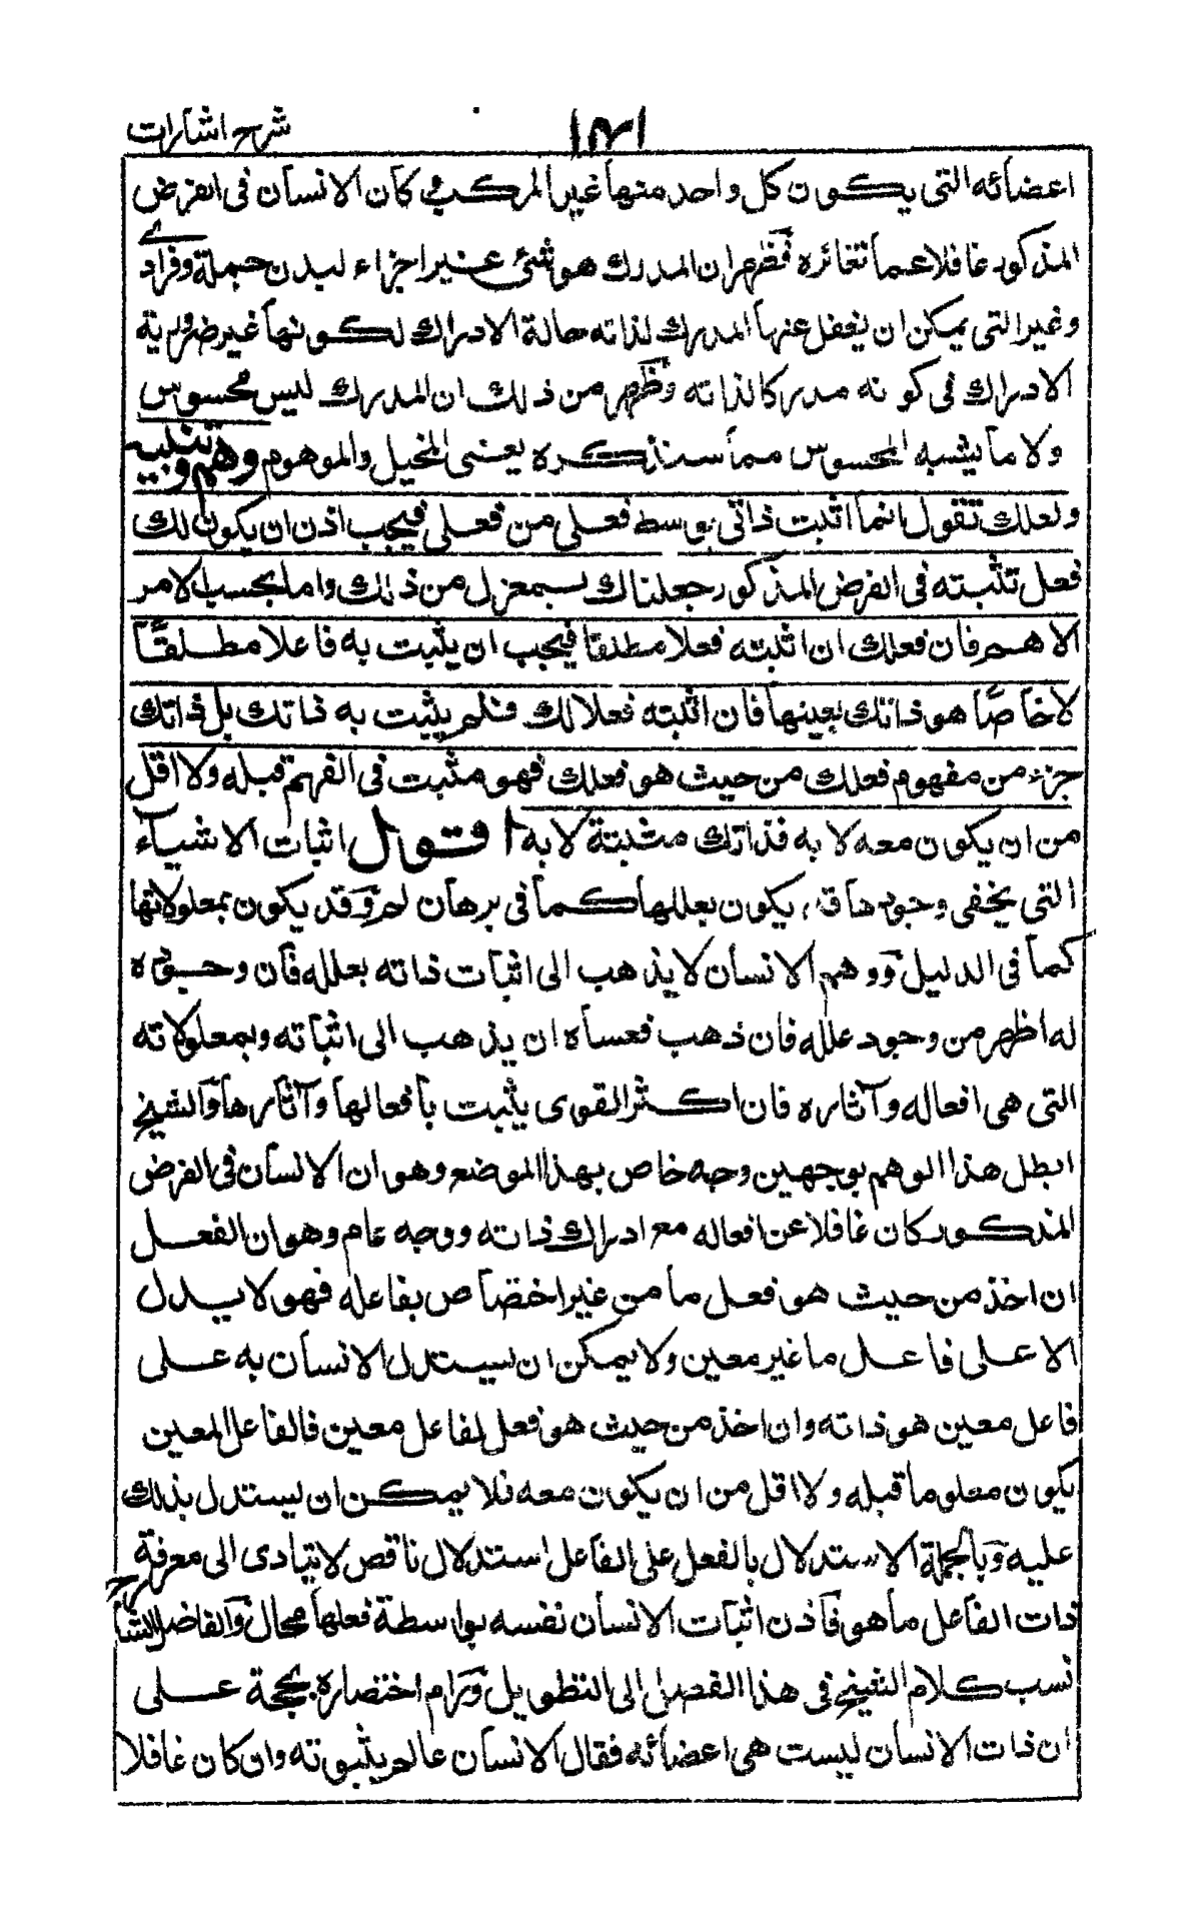 شرح اشارات
اعضائه التى يكون كل واحد منها غير المركب كان الانسان فى الفرض
المذكور غافلا عما تغائره فظهر ان المدرك هو شئ غير اجزاء لبدن جملة وفرادى
وغير التى يمكن ان يغفل عنها المدرك لذاته حالة الادراك لكونها غير ضرورية
الادراك فى كونه مدركا لذاته وظهر من ذلك ان المدرك ليس محسوس
ولا ما يشبه المحسوس مما سنذكره يعنى المخيل والموهوم وهم وتنبيه
ولعلك تقول انما اثبت ذاتى بوسط فعلى من فعلى فيجب اذن ان يكون لك
فعل تثبته فى الفرض المذكور جعلناك بمعزل من ذلك واما بحسب الامر
الاهم فان فعلك ان اثبته فعلا مطلقا فيجب ان يثبت به فاعلا مطلقًا
لا خاصًا هو ذاتك بعينها فان اثبته فعلا لك فلم يثبت به ذاتك بل ذاتك
جزء من مفهوم فعلك من حيث هو فعلك فهو مثبت فى الفهم قبله ولا اقل
من ان يكون معه لا به فذاتك مثبتة لا به اقول اثبات الاشيآء
التي يخفى وجودها قد يكون بعللها كما فى برهان لم وقد يكون بمعلولاتها
كما فى الدليل ووهم الانسان لا يذهب الى اثبات ذاته بعلله فان وجوده
له اظهر من وجود علله فان ذهب فعساه ان يذهب الى اثباته وبمعلولاته
التى هى افعاله وآثاره فان اكثر القوى يثبت بافعالها وآثارها والشيخ
ابطل هذا الوهم بوجهين وجه خاص بهذا الموضع وهو ان الانسان فى الفرض
المذكور كان غافلا عن افعاله مع ادراك ذاته ووجه عام وهو ان الفعل
ان اخذ من حيث هو فعل ما من غير اختصاص بفاعله فهو لا يدل
الا على فاعل ما غير معين ولا يمكن ان يستدل الانسان به على
فاعل معين هو ذاته وان اخذ من حيث هو فعل لفاعل معين فالفاعل المعين
يكون معلوما قبله ولا اقل من ان يكون معه فلا يمكن ان يستدل بذلك
عليه وبالجملة الاستدلال بالفعل على الفاعل استدلال ناقص لا يتادى الى معرفة
ذات الفاعل ما هو فاذن اثبات الانسان نفسه بواسطة فعلها محال والفاضل الشارح
نسب كلام الشيخ فى هذا الفصل الى التطويل ورام اختصاره بحجة على
ان ذات الانسان ليست هى اعضائه فقال الانسان عالم بثبوته وان كان غافلا